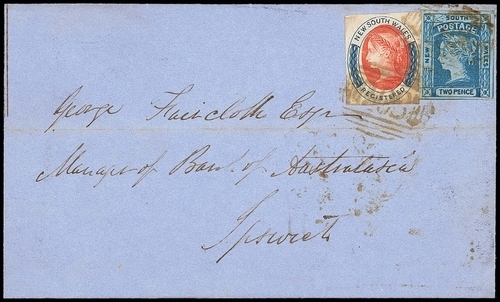 NEW SOUTH WALES
REGISTERED
SOUTH
POSTAGE
NEW
WALES
TWO PENCE
George Faircloth Esqr
Manager of Bank of Australasia
Ipswich